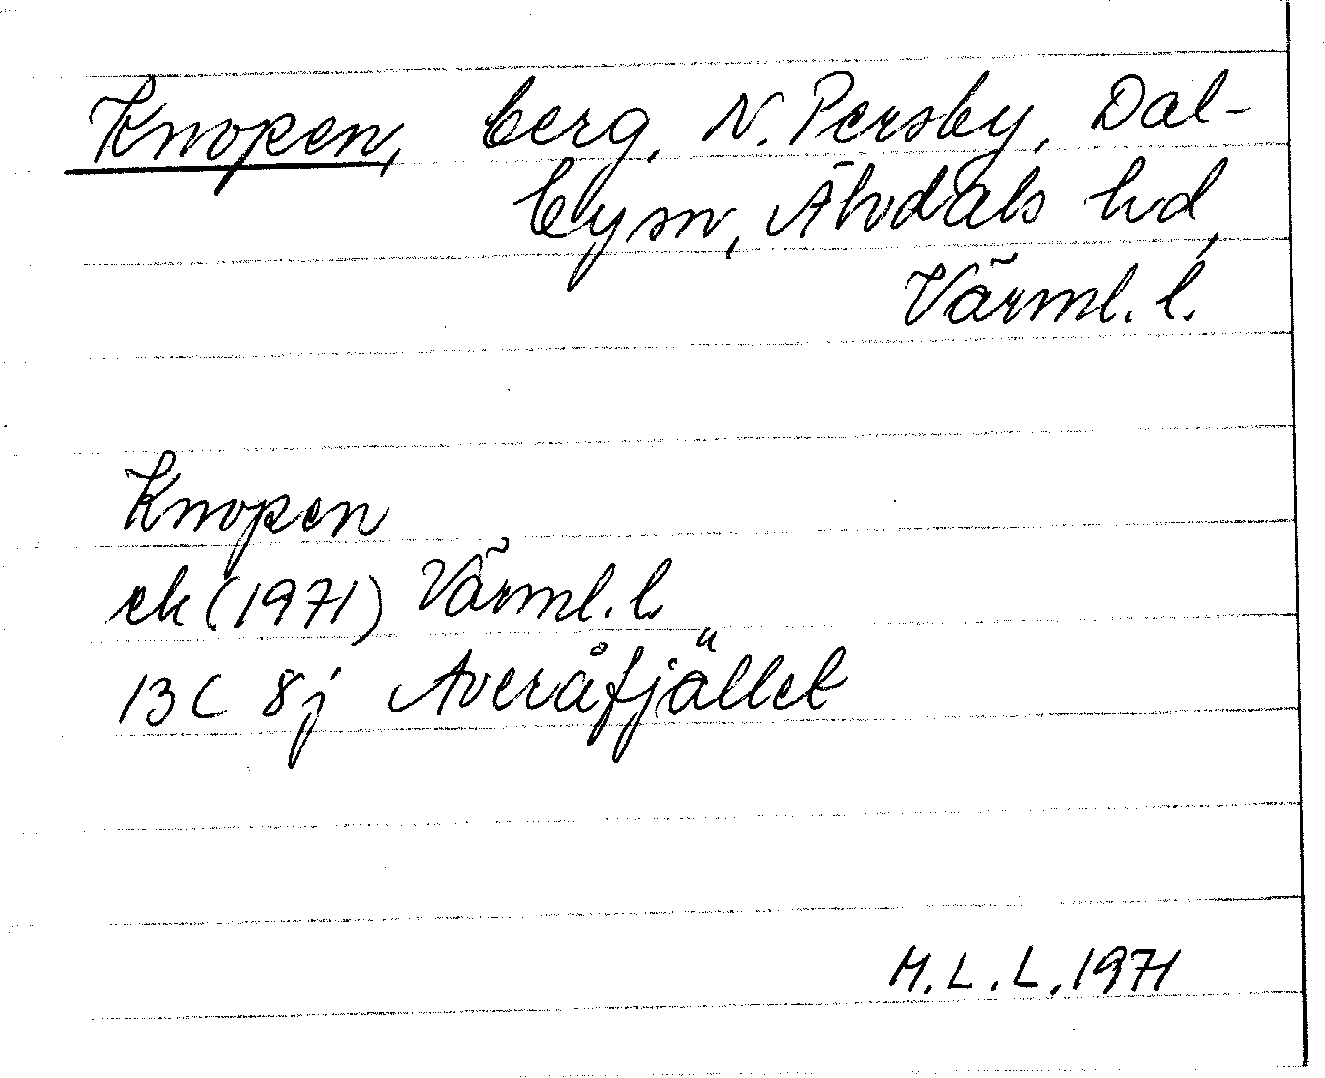 Knopen, berg, N. Persby, Dal-
by sn, Älvdals hd,
Värml. l.
Knopen
ek (1971) Värml. l.
13 C 8j Averåfjället
M. L. L. 1971